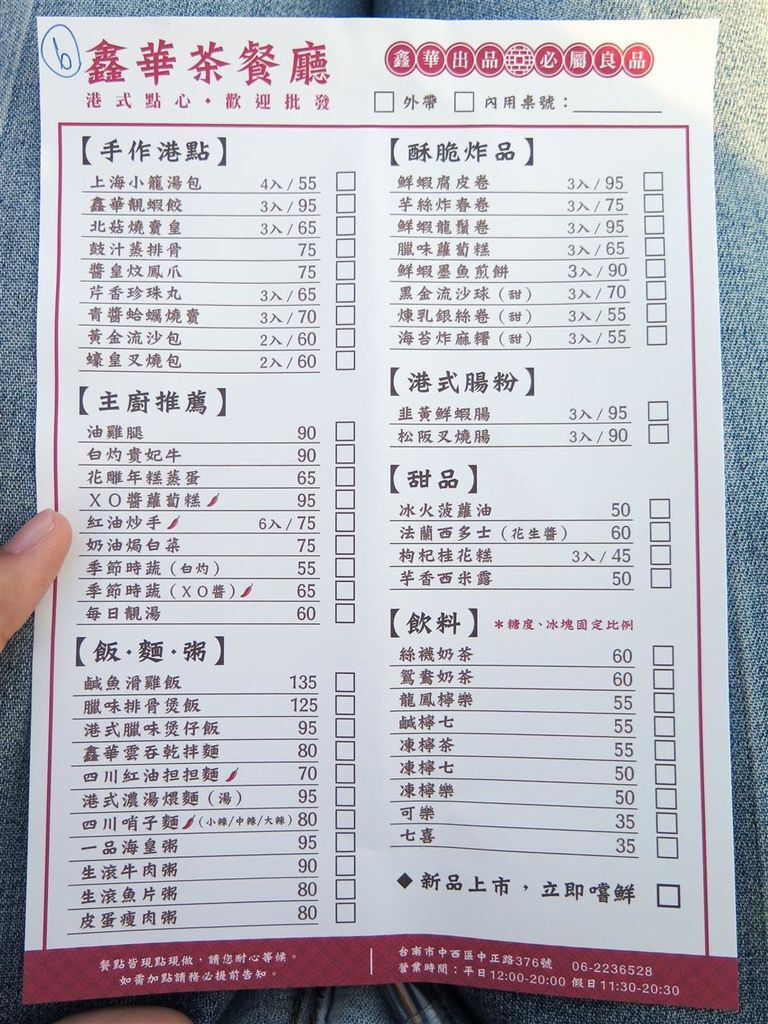 6
鑫華茶餐廳
港式點心·歡迎批發
鑫華出品 必屬良品
□外帶 □內用桌號：
【手作港點】
上海小籠湯包 4入/55 □
鑫華靚蝦餃 3入/95 □
北菇燒賣皇 3入/65 □
鼓汁蒸排骨 75 □
醬皇炆鳳爪 75 □
芹香珍珠丸 3入/65 □
青醬蛤蠣燒賣 3入/70 □
黃金流沙包 2入/60 □
蠔皇叉燒包 2入/60 □
【主廚推薦】
油雞腿 90 □
白灼貴妃牛 90 □
花雕年糕蒸蛋 65 □
XO醬蘿蔔糕 95 □
紅油炒手 6入/75 □
奶油焗白菜 75 □
季節時蔬（白灼） 55 □
季節時蔬（XO醬） 65 □
每日靚湯 60 □
【飯·麵·粥】
鹹魚滑雞飯 135 □
臘味排骨煲飯 125 □
港式臘味煲仔飯 95 □
鑫華雲吞乾拌麵 80 □
四川紅油担担麵 70 □
港式濃湯煨麵（湯） 95 □
四川哨子麵（小辣/中辣/大辣） 80 □
一品海皇粥 95 □
生滾牛肉粥 90 □
生滾魚片粥 80 □
皮蛋瘦肉粥 80 □
【酥脆炸品】
鮮蝦腐皮卷 3入/95 □
芊絲炸春卷 3入/75 □
鮮蝦龍鬚卷 3入/95 □
臘味蘿蔔糕 3入/65 □
鮮蝦墨魚煎餅 3入/90 □
黑金流沙球（甜） 3入/70 □
煉乳銀絲卷（甜） 3入/55 □
海苔炸麻糬（甜） 3入/55 □
【港式腸粉】
韭黃鮮蝦腸 3入/95 □
松阪叉燒腸 3入/90 □
【甜品】
冰火菠蘿油 50 □
法蘭西多士（花生醬） 60 □
枸杞桂花糕 3入/45 □
芋香西米露 50 □
【飲料】 *糖度、冰塊固定比例
絲襪奶茶 60 □
鴛鴦奶茶 60 □
龍鳳檸樂 55 □
鹹檸七 55 □
凍檸茶 55 □
凍檸七 50 □
凍檸樂 50 □
可樂 35 □
七喜 35 □
◆新品上市，立即嚐鮮 □
餐點皆現點現做，請您耐心等候。
如需加點請務必提前告知。
台南市中西區中正路376號 06-2236528
營業時間：平日12:00-20:00 假日11:30-20:30